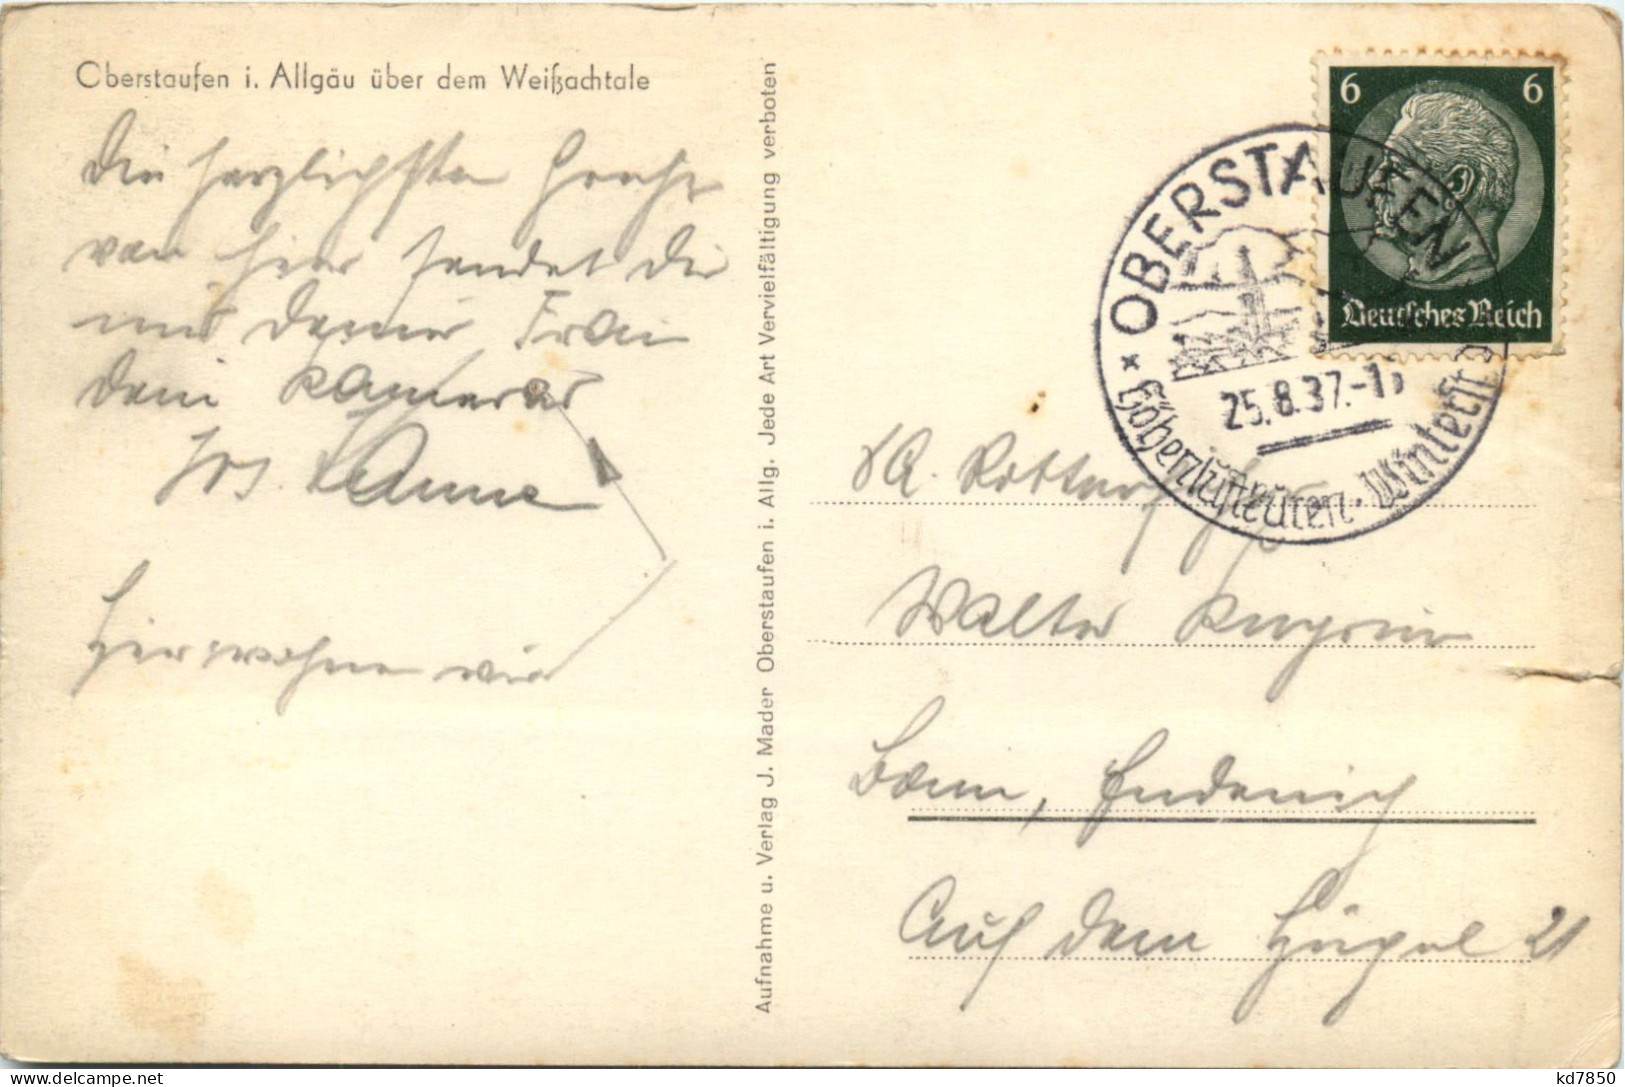 Oberstaufen i. Allgäu über dem Weißachtale
Die herzlichsten Grüße
von hier sendet dir
und deiner Frau
dein Kamerad
Jos.
Hier wohnen wir
Aufnahme u. Verlag J. Mader Oberstaufen i. Allg. Jede Art Vervielfältigung verboten
6 6
Deutsches Reich
* OBERSTAUFEN
25.8.37.-1
Höhenluftkuren. Winter
SA.
Walter
Bonn, Endenich
Auf dem Hügel 21
kd7850